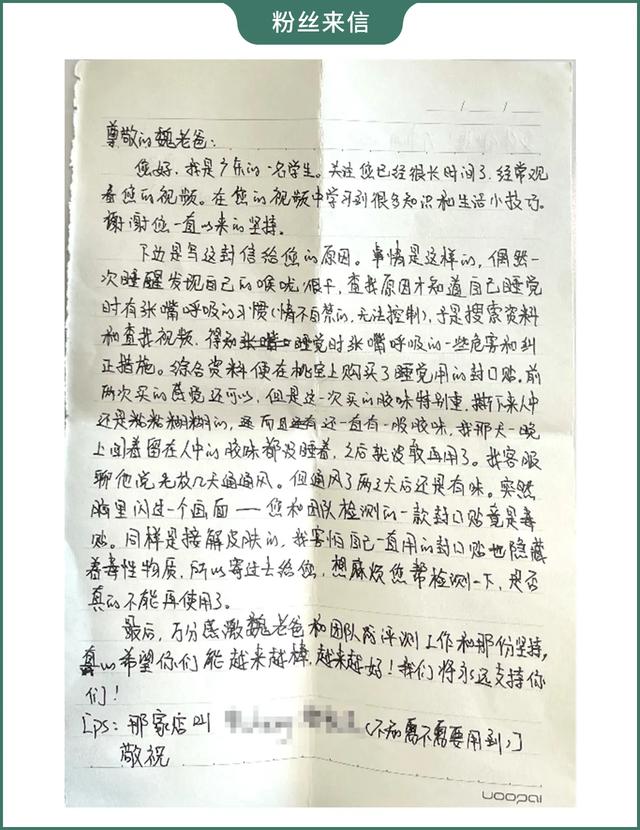 粉丝来信
尊敬的魏老爸:
您好,我是广东的一名学生。关注您已经很长时间了,经常观
看您的视频。在您的视频中学习到很多知识和生活小技巧。
谢谢您一直以来的坚持。
下边是写这封信给您的原因。事情是这样的,偶然一
次睡醒发现自己的喉咙很干,查找原因才知道自己睡觉
时有张嘴呼吸的习惯(情不自禁的,无法控制),于是搜索资料
和查找视频,得知张嘴睡觉时张嘴呼吸的一些危害和纠
正措施。综合资料便在桃宝上购买了睡觉用的封口贴。前
两次买的感觉还可以,但是这一次买的胶味特别重,撕下来人中
还是粘粘糊糊的,而且还有一直有一股胶味,我那天一晚
上闻着留在人中的胶味都没睡着,之后就没敢再用了。找客服
聊他说先放几天通通风。但通风了两三天后还是有味。突然
脑里闪过一个画面——您和团队检测的一款封口贴竟是毒
贴。同样是接触皮肤的,我害怕自己一直用的封口贴也隐藏
着毒性物质,所以寄过去给您,想麻烦您帮检测一下,是否
真的不能再使用了。
最后,万分感激魏老爸和团队的评测工作和那份坚持,
真心希望你们能越来越棒,越来越好!我们将永远支持你
们!
[ps:那家店叫 (不知需不需要用到)]
敬祝
uoopai